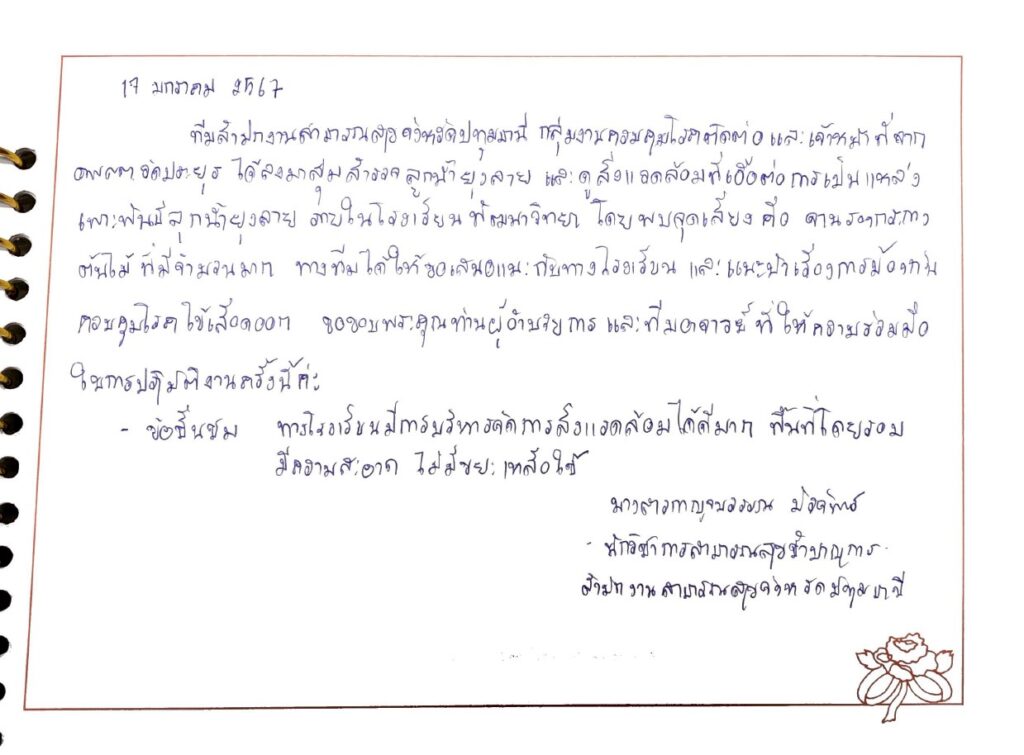 17 มกราคม 2567
ทีมสำนักงานสาธารณสุขจังหวัดปทุมธานี กลุ่มงานควบคุมโรคติดต่อ และเจ้าหน้าที่จาก
ได้ลงมาสุ่มสำรวจลูกน้ำยุงลาย และดูสิ่งแวดล้อมที่เอื้อต่อการเป็นแหล่ง
เพาะพันธุ์ลูกน้ำยุงลาย ภายในโรงเรียน โดยพบจุดเสี่ยง คือ จานรองกระถาง
ต้นไม้ ที่มีจำนวนมาก ทางทีมได้ให้ข้อเสนอแนะกับทางโรงเรียน และแนะนำเรื่องการป้องกัน
ควบคุมโรคไข้เลือดออก ขอขอบพระคุณท่านผู้อำนวยการ และทีมอาจารย์ ที่ให้ความร่วมมือ
ในการปฏิบัติงานครั้งนี้ค่ะ
- ข้อชื่นชม ทางโรงเรียนมีการบริหารจัดการสิ่งแวดล้อมได้ดีมาก พื้นที่โดยรวม
มีความสะอาด ไม่มีขยะเหลือใช้
นางสาวกาญจนวรรณ
- นักวิชาการสาธารณสุขชำนาญการ -
สำนักงานสาธารณสุขจังหวัดปทุมธานี